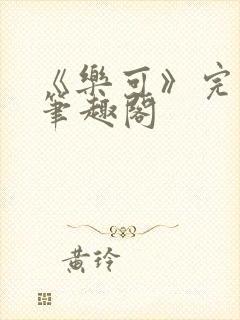 《樂可》完
筆趣閣
黃玲